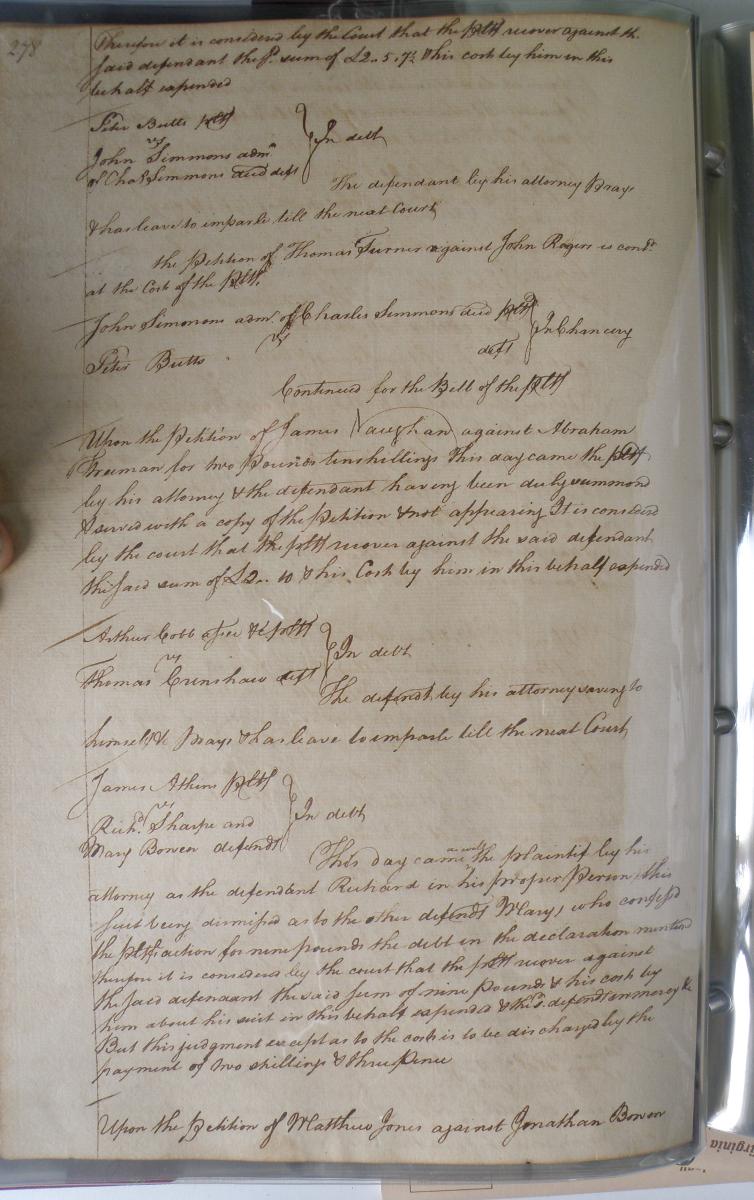 278
Therefore it is considered by the Court that the pltf recover against the
said defendant the sd. sum of £2..5.7½ & his costs by him in this
behalf expended
Peter Butts pltf
vs
In debt
John Simmons admr
of Chas Simmons decd deft
The defendant by his attorney Prays
& has leave to imparle till the next Court
the Petition of Thomas Turner against John Rogers is contd.
at the Cost of the Pltf.
John Simmons adm. of Charles Simmons decd pltf
vs
In Chancery
deft
Peter Butts
Continued for the Bill of the pltf
Upon the Petition of James Vaughan against Abraham
Freeman for two Pounds ten shillings This day came the pltf
by his attorney & the defendant having been duly summond
& served with a copy of the Petition & not appearing It is considered
by the court that the pltf recover against the said defendant
the said sum of £2.. 10 & his Costs by him in this behalf expended
Arthur Cobb assee &c pltf
vs
In debt
Thomas Crenshaw deft
The defendt by his attorney saving to
himself &c Prays & has leave to imparle till the next Court
James Atkins pltf
vs
In debt
Richd. Sharpe and
Mary Bowen defendts
This day came as well the plaintif by his
attorney as the defendant Richard in his proper Person (this
suit being dismissed as to the other defendt Mary) who confessd
the pltfs action for nine pounds the debt in the declaration mentiond
therefore it is considered by the court that the pltf recover against
the said defendant the said sum of nine Pounds & his costs by
him about his suit in this behalf expended & the sd. defendt in mercy &c
But this judgment except as to the costs is to be discharged by the
payment of two shillings & three Pence
Upon the Petition of Matthew Jones against Jonathan Bowen
Virginia